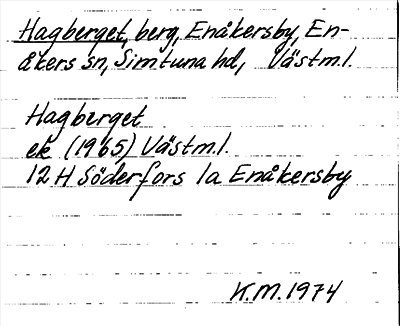 Hagberget, berg, Enåkersby, En-
åkers sn, Simtuna hd, Västml.
Hagberget
ek (1965) Västml.
12 H Söderfors 1a Enåkersby
K.M. 1974